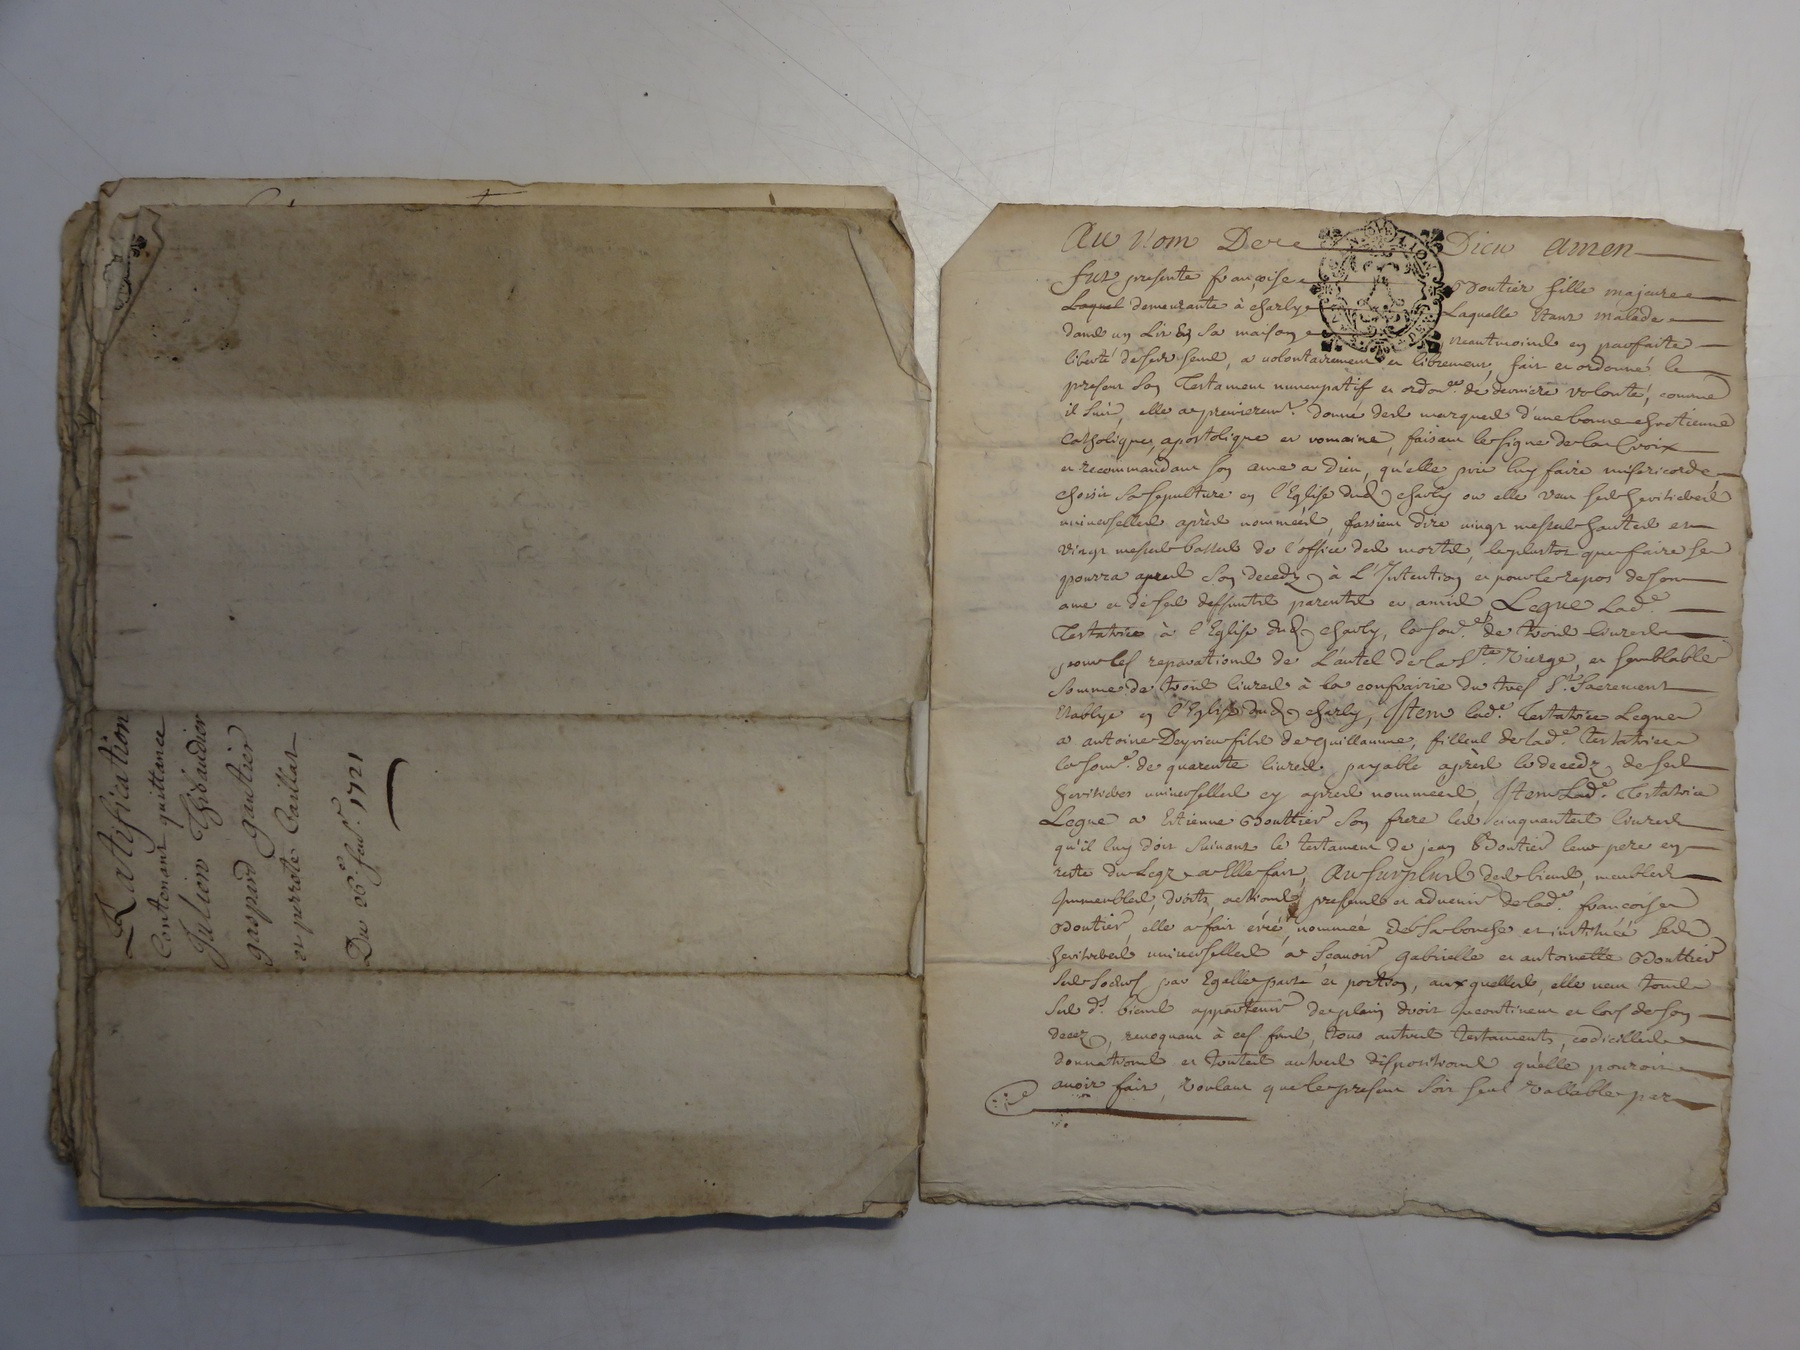 Ratification
Contenant quittance
Julien Thibaudier
gaspard gautier
et perrote Caillat
Du 26e. janv.r 1721
Au Nom De Dieu amen
fut presente françoise Odoutier fille majeure
Laquel demeurante à charly Laquelle etant malade
dans un Lit En sa maison neantmoins en parfaite
liberté de ses sens, a volontairement et librement, fait et ordonné le
present son Testament nuncupatif et ordon.ce de derniere volonté, comme
il suit, elle a premierem.t donné des marques d'une bonne chretienne
Catholique, apostolique et romaine, faisant le signe de la Croix
et recommandant son ame a Dieu, qu'elle prie luy faire misericorde,
choisit sa sepulture en l'Eglise dud. charly ou elle veut ses heritieres
universelles après nommées, fassent dire vingt messes hautes et
vingt messes basses de l'office des morts, le plustot que faire se
pourra apres son decedz à L'Intention et pour le repos de son
ame et de ses deffunts parents et amis Legue Lad.e
Testatrice à l'Eglise dud. charly, la som.e de trois livres
pour les reparations de L'autel de la S.te Vierge, et semblable
somme de trois livres à la confrairie du tres S.t Sacrement
Etablye en l'Eglise dud. charly, Item lad.e Testatrice Legue
a antoine Deyrieu fils de guillaume, filleul de lad.e testatrice
la som.e de quarente livres payable après le decedz de ses
heritieres universelles cy apres nommees, Item Lad.e Testatrice
Legue a Estienne Odouttier son frere les cinquantes livres
qu'il luy doit suivant le testament de jean Odoutier leur pere en
reste du Legz a Elle fait, Au surplus des biens, meubles
Immeubles, droits, actions presents et advenir de lad.e françoise
Odoutier, elle a fait créé, nommé de sa bouche et institué ses
heritieres universelles a sçavoir gabrielle et antoinette Odouttier
ses soeurs par Egalle part et portion, auxquelles, elle veut tous
ses d.s biens appartenir de plain droit incontinent et lors de son
decez, revoquant à ces fins, tous autres testaments, codicilles
donnations et toutes autres dispositions qu'elle pouroit
avoir fait, voulant que le present soit seul vallable par